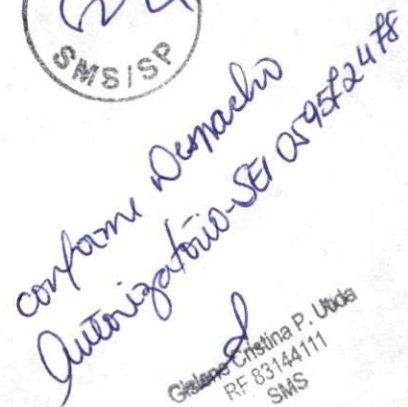 SMS/SP
conforme Despacho
Autorizatório-SEI 059572478
Cristina P. Utida
RF 83144111
SMS